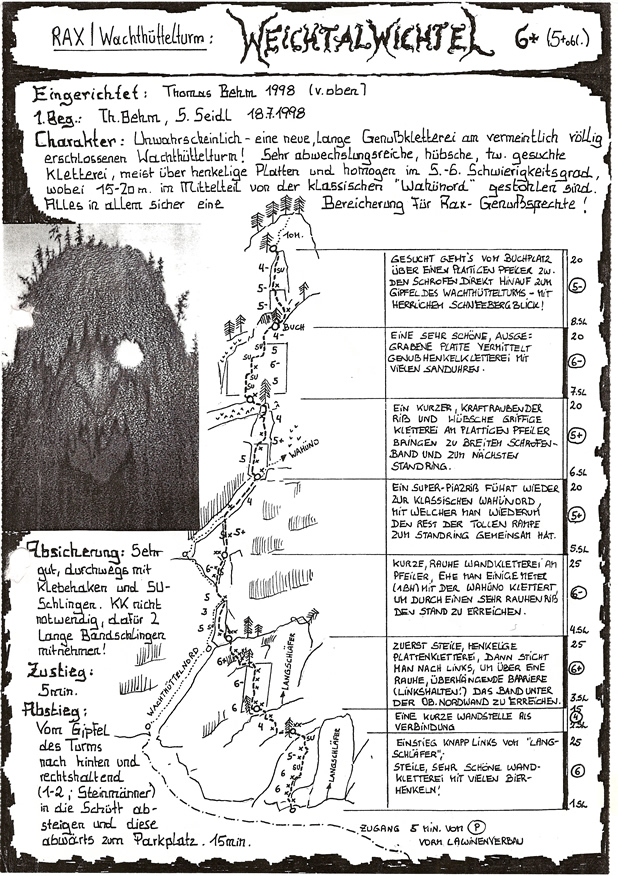 RAX / Wachthüttelturm: WEICHTALWICHTEL 6+ (5+obl.)
Eingerichtet: Thomas Behm 1998 (v. oben)
1. Beg.: Th. Behm, S. Seidl 18.7.1998
Charakter: Unwahrscheinlich - eine neue, lange Genußkletterei am vermeintlich völlig
erschlossenen Wachthüttelturm! Sehr abwechslungsreiche, hübsche, tw. gesuchte
Kletterei, meist über henkelige Platten und homogen im 5.-6. Schwierigkeitsgrad,
wobei 15-20m. im Mittelteil von der klassischen "Wahünord" gestohlen sind.
Alles in allem sicher eine Bereicherung für Rax-Genußspechte!
10H.
4-
SU
5-
5-
BUCH
GESUCHT GEHT'S VOM BUCHPLATZ
ÜBER EINEN PLATTIGEN PFEILER ZW.
DEN SCHROFEN DIREKT HINAUF ZUM
GIPFEL DES WACHTHÜTTELTURMS - MIT
HERRLICHEM SCHNEEBERGBLICK!
20
5-
8.SL
4-
SU
5
SU
6-
SU
5
EINE SEHR SCHÖNE, AUSGE-
GRABENE PLATTE VERMITTELT
GENUßHENKELKLETTEREI MIT
VIELEN SANDUHREN.
20
6-
7.SL
4
5
5+
5
WAHÜNO
EIN KURZER, KRAFTRAUBENDER
RIß UND HÜBSCHE GRIFFIGE
KLETTEREI AM PLATTIGEN PFEILER
BRINGEN ZU BREITEN SCHROFEN-
BAND UND ZUM NÄCHSTEN
STANDRING.
20
5+
6.SL
EIN SUPER-PIAZRIß FÜHRT WIEDER
ZUR KLASSISCHEN WAHÜNORD,
MIT WELCHER MAN WIEDERUM
DEN REST DER TOLLEN RAMPE
ZUM STANDRING GEMEINSAM HAT.
20
5+
5.SL
5+
6-
5
3
5
KURZE, RAUHE WANDKLETTEREI AM
PFEILER, EHE MAN EINIGE METER
(1BH) MIT DER WAHÜNO KLETTERT,
UM DURCH EINEN SEHR RAUHEN RIß
DEN STAND ZU ERREICHEN.
25
6-
4.SL
Absicherung: Sehr
gut, durchwegs mit
Klebehaken und SU-
Schlingen. KK nicht
notwendig, dafür 2
lange Bandschlingen
mitnehmen!
Zustieg:
5min.
WACHTHÜTTELNORD
LANGSCHLÄFER
6+
6-
6-
ZUERST STEILE, HENKELIGE
PLATTENKLETTEREI, DANN STICHT
MAN NACH LINKS, UM ÜBER EINE
RAUHE, ÜBERHÄNGENDE BARRIERE
(LINKSHALTEN!) DAS BAND UNTER
DER OB. NORDWAND ZU ERREICHEN.
25
6+
3.SL
4
EINE KURZE WANDSTELLE ALS
VERBINDUNG
15
4
2.SL
Abstieg:
Vom Gipfel
des Turms
nach hinten und
rechtshaltend
(1-2, Steinmänner)
in die Schütt ab-
steigen und diese
abwärts zum Parkplatz. 15min.
SU
5-
5
6
6
LANGSCHLÄFER
EINSTIEG KNAPP LINKS VON "LANG-
SCHLÄFER";
STEILE, SEHR SCHÖNE WAND-
KLETTEREI MIT VIELEN BIER-
HENKELN!
25
6
1.SL
ZUGANG 5 MIN. VOM P
VORM LAWINENVERBAU